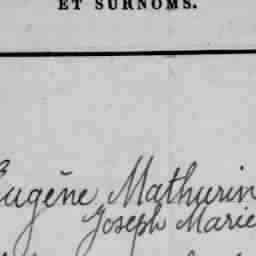 ET SURNOMS.
Eugène Mathurin
Joseph Marie